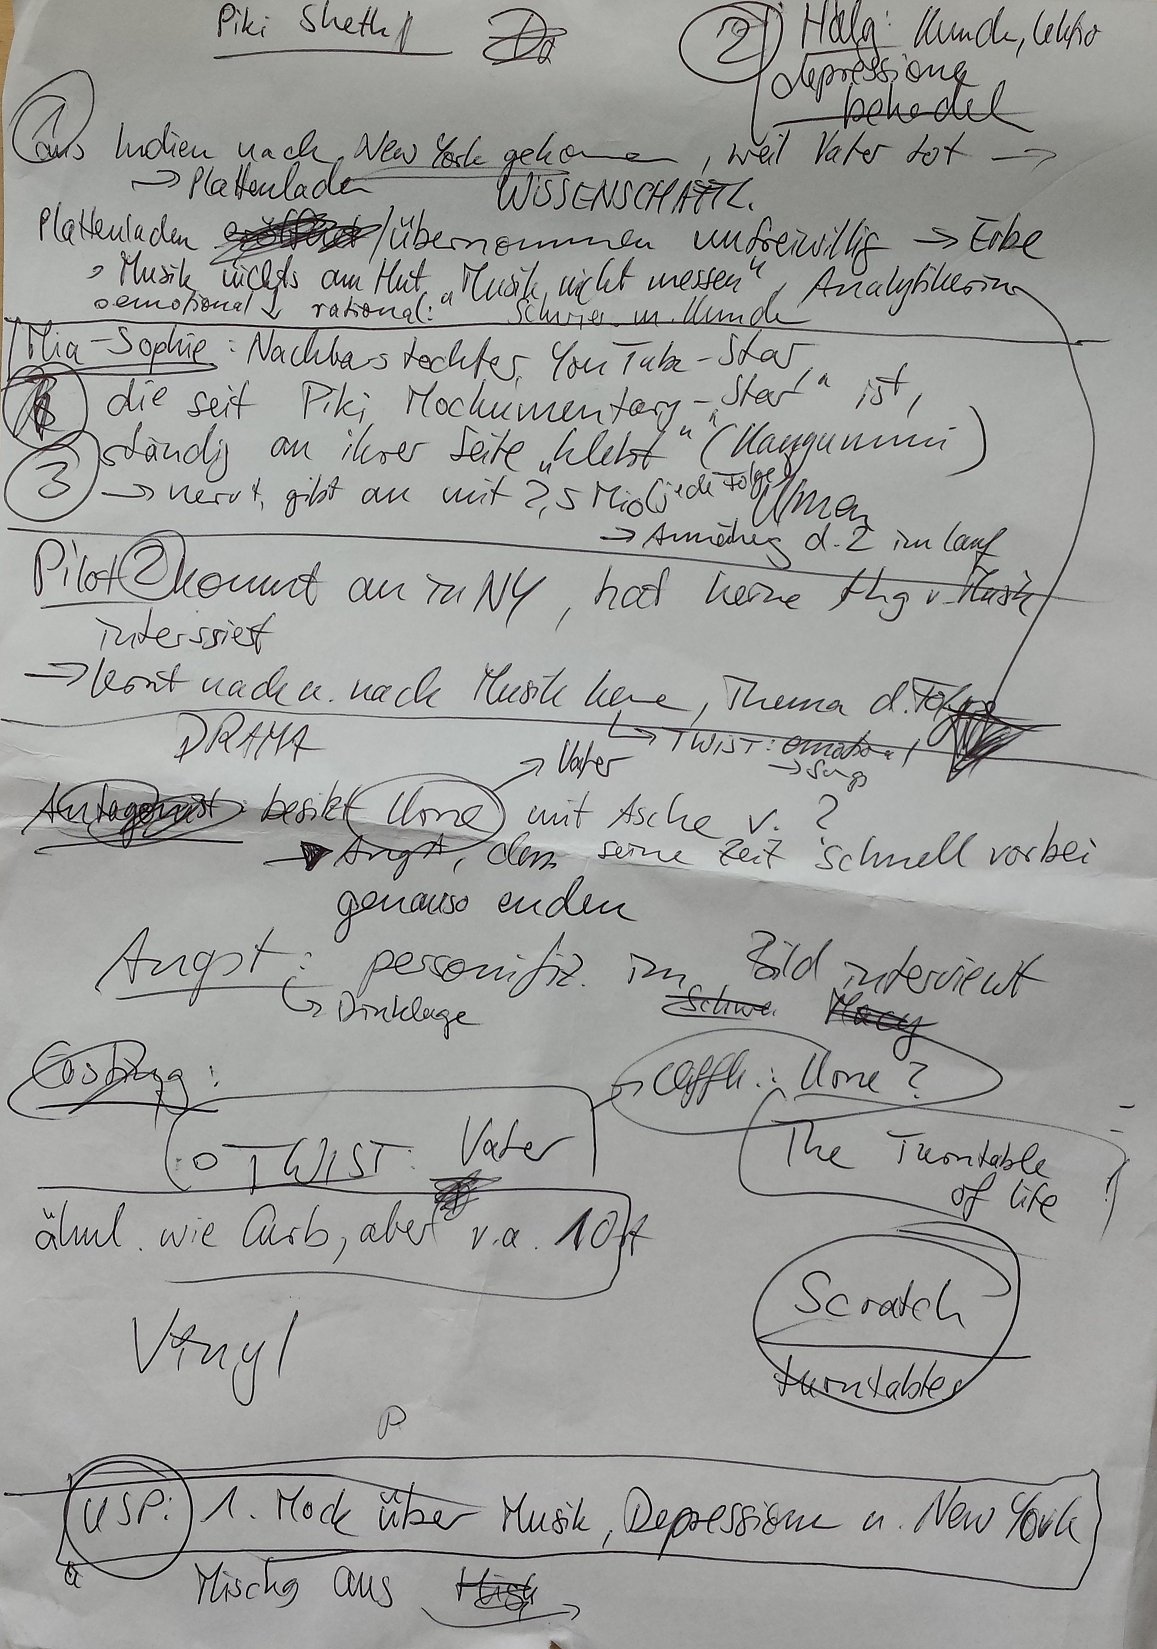 Piki Sheth
2 Holg: Kunde,
depressione
behandel
1
aus Indien nach New York gekommen, weil Vater tot →
→ Plattenladen WISSENSCHAFTL.
Plattenladen eröffnet/übernommen unfreiwillig → Erbe
Musik nichts am Hut, "Musik nicht messen", Analytikerin
emotional ↓ rational: schwier. m. Kunde
Mia-Sophie: Nachbarstochter, YouTube-Star,
die seit Piki Mockumentary-"Star" ist,
ständig an ihrer Seite "klebt" (Kaugummi)
3 → nervt, gibt an mit 2,5 Mio (jede Folge)
→ Annäherg d. 2 im Lauf
Pilot 2 kommt an in NY, hat keine Ahg v. Musik
interssiert
→ lernt nach u. nach Musik kenne, Thema d. Folge
DRAMA
→ TWIST: emotional
→ Vater
→ Song
Antagonist: besitzt Urne mit Asche v. ?
→ Angst, dass seine Zeit schnell vorbei
genauso enden
Angst: personifiz. im Bild interviewt
↳ Dinklage
Casting:
→ Cliffh.: Urne?
o TWIST: Vater
The Turntable
of life
ähnl. wie Curb, aber v.a. Ort
Scratch
Vinyl
turntables
P
USP: 1. Mock über Musik, Depressione u. New York
Mischg aus